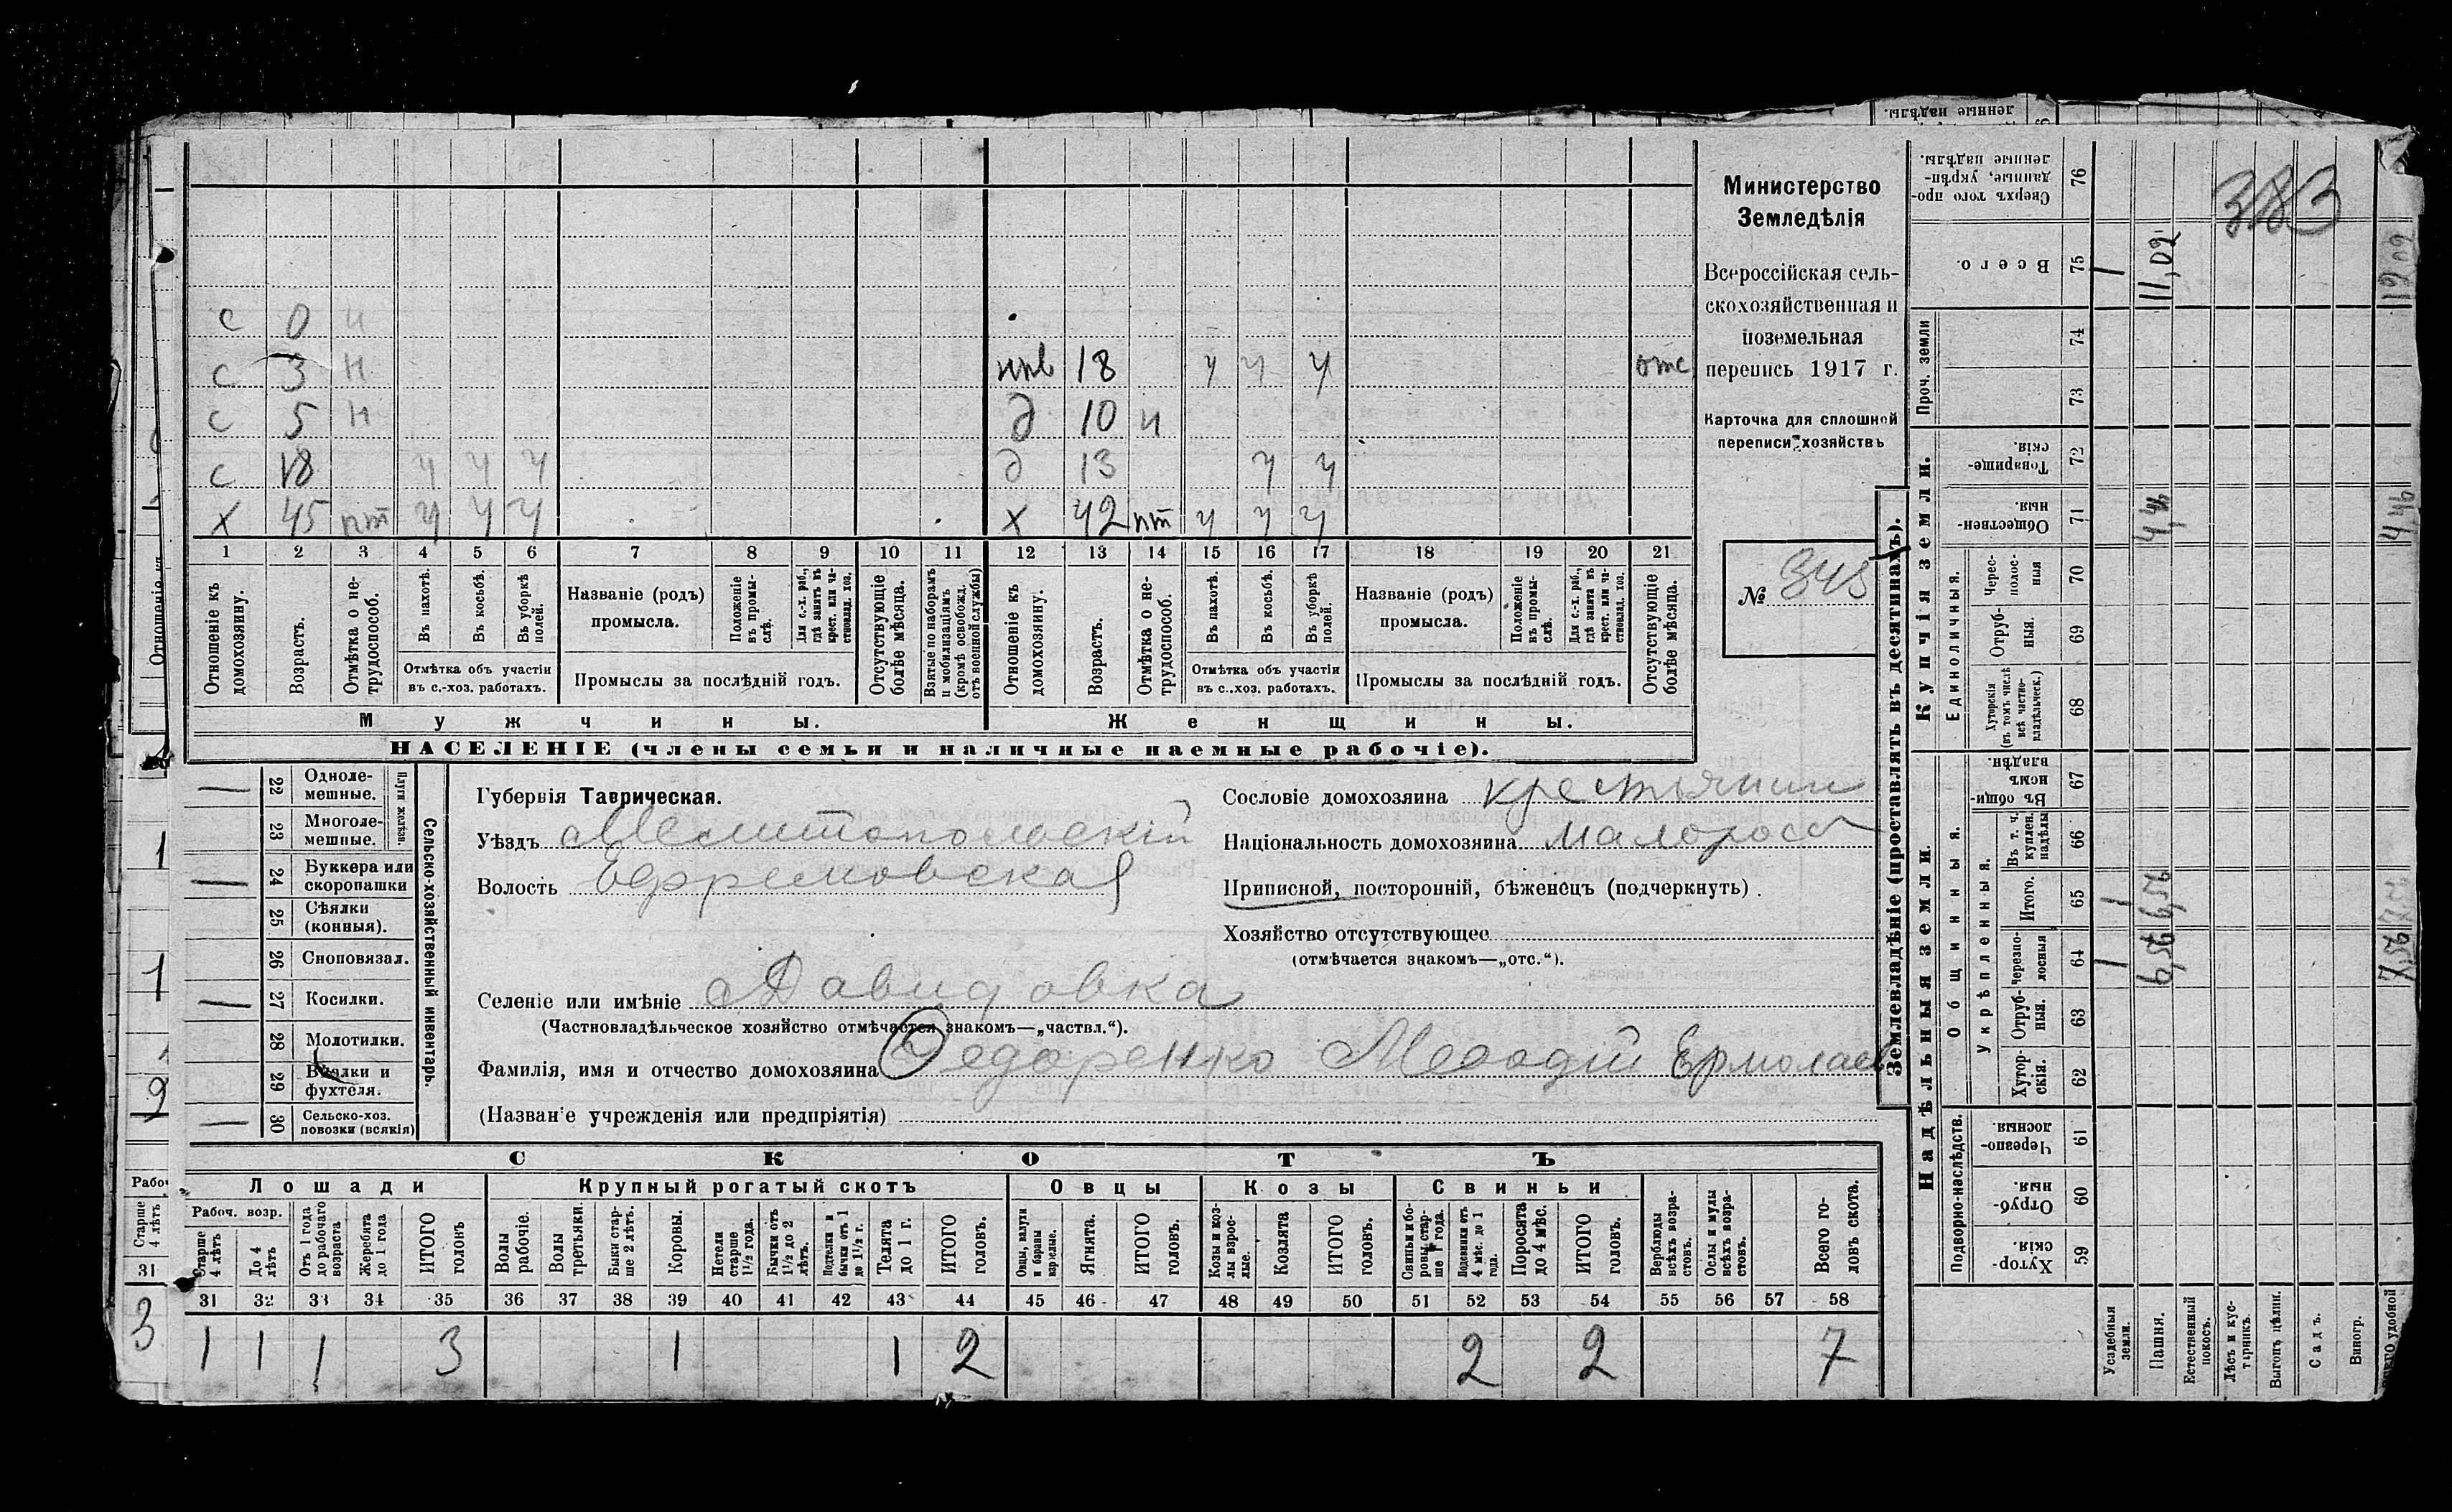 с 0 н
с 3 н
с 5 н
с 18 ч ч ч
х 45 пт ч ч ч
нев 18 ч ч ч отс
д 10 н
д 13 ч ч
х 42 пт ч ч ч
1 2 3 4 5 6 7 8 9 10 11 12 13 14 15 16 17 18 19 20 21
Отношеніе къ домохозяину.
Возрастъ.
Отмѣтка о не-трудоспособ.
Въ пахотѣ.
Въ косьбѣ.
Въ уборкѣ полей.
Отмѣтка объ участіи
въ с.-хоз. работахъ.
Названіе (родъ)
промысла.
Положеніе въ промы-слѣ.
Для с.-х. раб., гдѣ занятъ въ крест. или ча-стновлад. хоз.
Промыслы за послѣдній годъ.
Отсутствующіе болѣе мѣсяца.
Взятые по наборамъ и мобилизаціямъ (кромѣ освобожд. отъ военной службы)
Отношеніе къ домохозяину.
Возрастъ.
Отмѣтка о не-трудоспособ.
Въ пахотѣ.
Въ косьбѣ.
Въ уборкѣ полей.
Отмѣтка объ участіи
въ с.-хоз. работахъ.
Названіе (родъ)
промысла.
Положеніе въ промы-слѣ.
Для с.-х. раб., гдѣ занята въ крест. или ча-стновлад. хоз.
Промыслы за послѣдній годъ.
Отсутствующіе болѣе мѣсяца.
Мужчины.
Женщины.
НАСЕЛЕНІЕ (члены семьи и наличные наемные рабочіе).
Министерство
Земледѣлія
Всероссійская сель-
скохозяйственная и
поземельная
перепись 1917 г.
Карточка для сплошной
переписи хозяйствъ
№ 345
22 Одноле-мешные.
23 Многоле-мешные.
Плуги желѣзн.
24 Буккера или скоропашки
25 Сѣялки (конныя).
26 Сноповязал.
27 Косилки.
28 Молотилки.
29 Вѣялки и фухтеля.
30 Сельско-хоз. повозки (всякія)
Сельско-хозяйственный инвентарь.
Губернія Таврическая.
Уѣздъ Мелитопольскій
Волость Ефремовская
Селеніе или имѣніе Давидовка
(Частновладѣльческое хозяйство отмѣчается знакомъ—„частвл.“).
Фамилія, имя и отчество домохозяина Федоренко Мефодій Ермолаев
(Названіе учрежденія или предпріятія)
Сословіе домохозяина крестьянин
Національность домохозяина малоросс
Приписной, посторонній, бѣженецъ (подчеркнуть).
Хозяйство отсутствующее
(отмѣчается знакомъ—„отс.“).
СКОТЪ
Лошади
Рабоч. возр.
Старше 4 лѣтъ
До 4 лѣтъ
Отъ 1 года до рабочаго возраста
Жеребята до 1 года
ИТОГО головъ
Крупный рогатый скотъ
Волы рабочіе.
Волы третьяки.
Быки стар-ше 2 лѣтъ.
Коровы.
Нетели старше 1½ года.
Бычки отъ 1½ до 2 лѣтъ.
Подтелки и бычки отъ 1 до 1½ г.
Телята до 1 г.
ИТОГО головъ.
Овцы
Овцы, валухи и бараны взрослые.
Ягнята.
ИТОГО головъ.
Козы
Козы и коз-лы взрос-лые.
Козлята
ИТОГО головъ.
Свиньи
Свиньи и бо-ровы стар-ше 1 года.
Подсвинки отъ 4 мѣс. до 1 года.
Поросята до 4 мѣс.
ИТОГО головъ.
Верблюды всѣхъ возра-стовъ.
Ослы и мулы всѣхъ возра-стовъ.
Всего го-ловъ скота.
31 32 33 34 35 36 37 38 39 40 41 42 43 44 45 46 47 48 49 50 51 52 53 54 55 56 57 58
1 1 1 3 1 1 2 2 2 7
Землевладѣніе (проставлять въ десятинахъ).
Купчія земли.
Надѣльныя земли.
383
76 Сверхъ того про-данные, укрѣп-ленные надѣлы.
75 Всего. 1 11,02
Проч. земли
74
73
72 Товарище-скія.
71 Обществен-ныя. 4,46 4,46
Единоличныя.
70 Черес-полос-ныя
69 Отруб-ныя.
68 Хуторскія (въ томъ числѣ всѣ частно-владѣльческ.)
67 Въ общи-номъ владѣн.
Общинныя.
Укрѣпленныя.
66 Въ т. ч. куплен. надѣлы
65 Итого. 1 6,56
64 Черезпо-лосныя 1 6,56 7,56
63 Отруб-ныя.
62 Хутор-скія.
Подворно-наслѣдств.
61 Черезпо-лосныя.
60 Отруб-ныя.
59 Хутор-скія.
Усадебныя земли.
Пашня.
Естественный покосъ.
Лѣсъ и кус-тарникъ.
Выгонъ цѣлин.
Садъ.
Виногр.
Отношеніе къ
1
1
9
Старше 4 лѣтъ
31
3